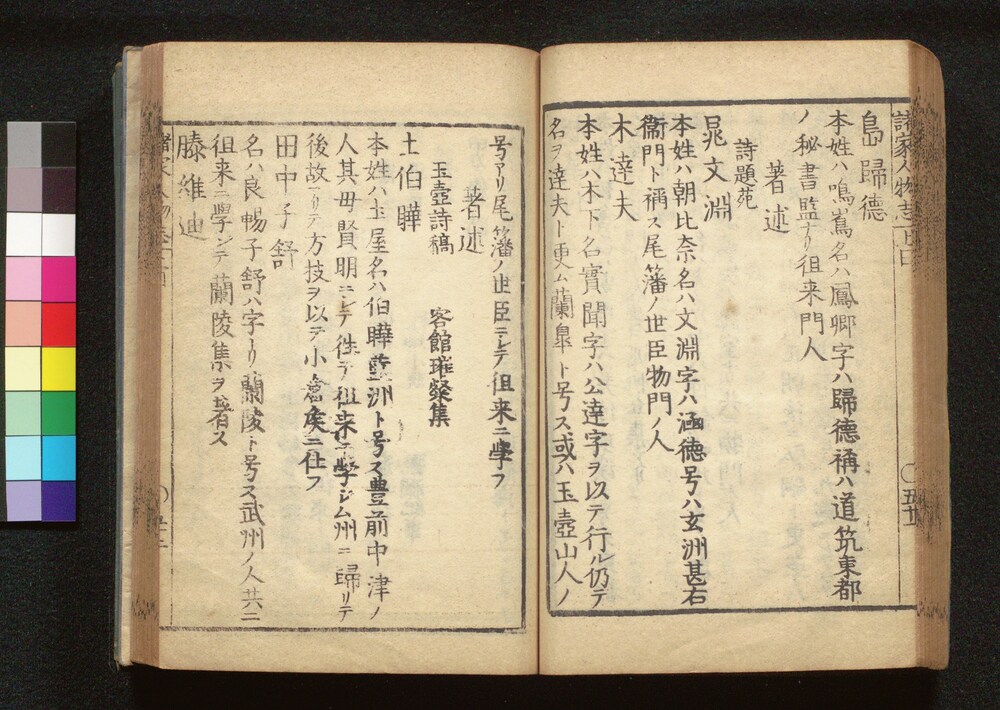 諸家人物志
島歸德
本姓ハ鳴嶌名ハ鳳卿字ハ歸德稱ハ道筑東都
ノ秘書監ナリ徂来門人
著述
詩題苑
晁文淵
本姓ハ朝比奈名ハ文淵字ハ涵德号ハ玄洲甚右
衞門ト稱ス尾藩ノ世臣物門ノ人
木達夫
本姓ハ木下名實聞字ハ公達字ヲ以テ行ル仍テ
名ヲ達夫ト更ム蘭皐ト号ス或ハ玉壺山人ノ
号アリ尾藩ノ世臣ニシテ徂来ニ學フ
著述
玉壺詩稿 客館璀粲集
土伯曄
本姓ハ土屋名ハ伯曄藍洲ト号ス豊前中津ノ
人其母賢明ニシテ徃テ徂来ニ學シム州ニ歸リテ
後故アリテ方技ヲ以テ小倉矦ニ仕フ
田中子舒
名ハ良暢子舒ハ字ナリ蘭陵ト号ス武州ノ人共ニ
徂来ニ學ンテ蘭陵集ヲ著ス
滕維迪